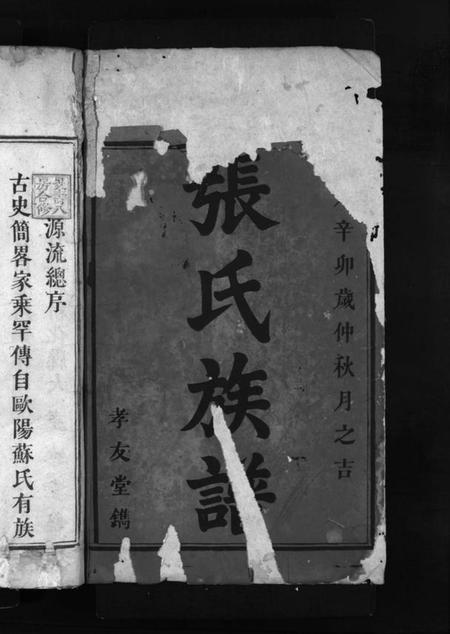 辛卯歲仲秋月之吉
張氏族譜
孝友堂鐫
源流總序
古史簡畧家乘罕傳自歐陽蘇氏有族